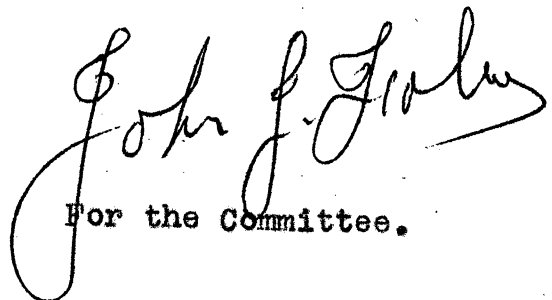 John J.
For the Committee.